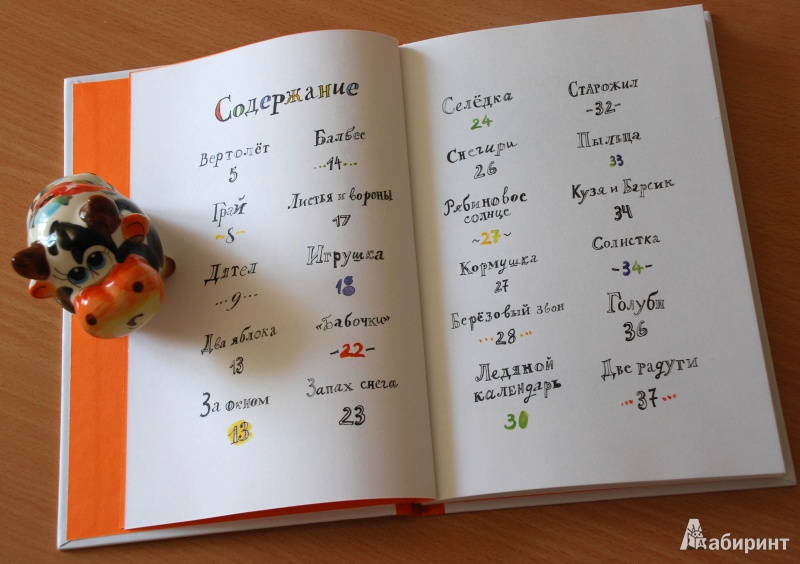 Содержание
Вертолёт
5
Грай
~8~
Дятел
...9...
Два яблока
13
За окном
13
Балбес
...14...
Листья и вороны
17
Игрушка
18
«Бабочки»
-22-
Запах снега
23
Селёдка
24
Снегири
26
Рябиновое
солнце
~27~
Кормушка
27
Берёзовый звон
...28...
Ледяной
календарь
30
Старожил
-32-
Пыльца
33
Кузя и Барсик
34
Солистка
-34-
Голуби
36
Две радуги
...37...
Лабиринт